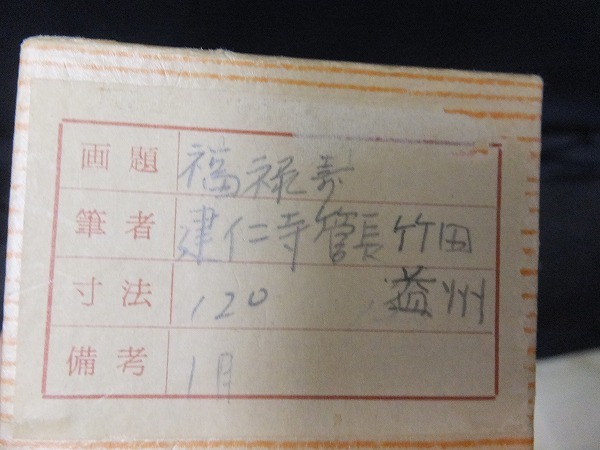 画題 福禄寿
筆者 建仁寺管長竹田
益州
寸法 120
備考 1月